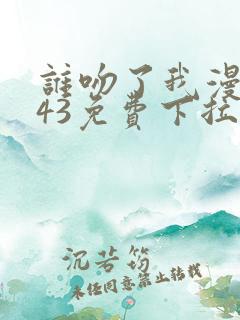 誰吻了我漫
43免費下拉
沉若筠
未经同意禁止转载